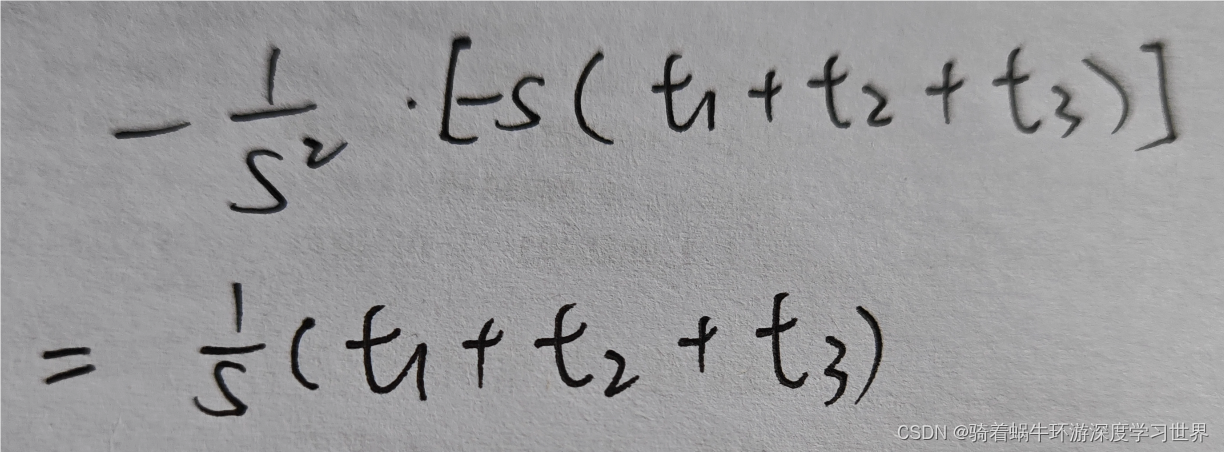 - 1/s² · [-s(t₁ + t₂ + t₃)]
= 1/s (t₁ + t₂ + t₃)
CSDN @骑着蜗牛环游深度学习世界